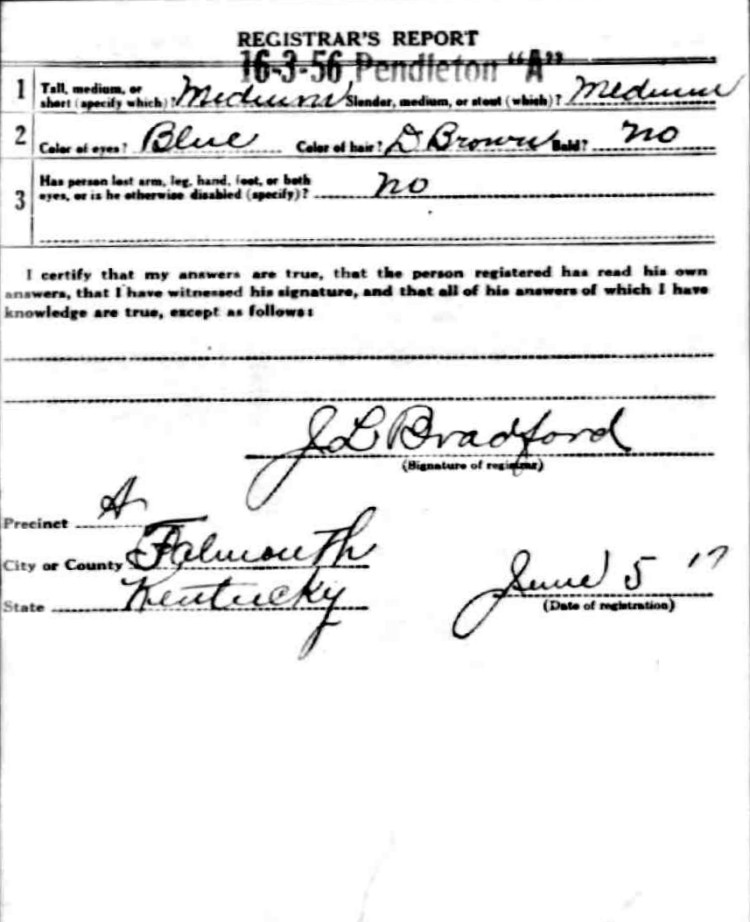 REGISTRAR'S REPORT
16-3-56 Pendleton "A"
1 Tall, medium, or
short (specify which)? Medium Slender, medium, or stout (which)? Medium
2 Color of eyes? Blue Color of hair? D Brown Bald? no
3 Has person lost arm, leg, hand, foot, or both
eyes, or is he otherwise disabled (specify)? no
I certify that my answers are true, that the person registered has read his own
answers, that I have witnessed his signature, and that all of his answers of which I have
knowledge are true, except as follows:
J L Bradford
(Signature of registrar)
Precinct A
City or County Falmouth
State Kentucky
June 5 '17
(Date of registration)